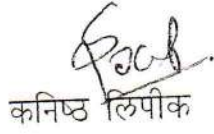 कनिष्ठ लिपीक